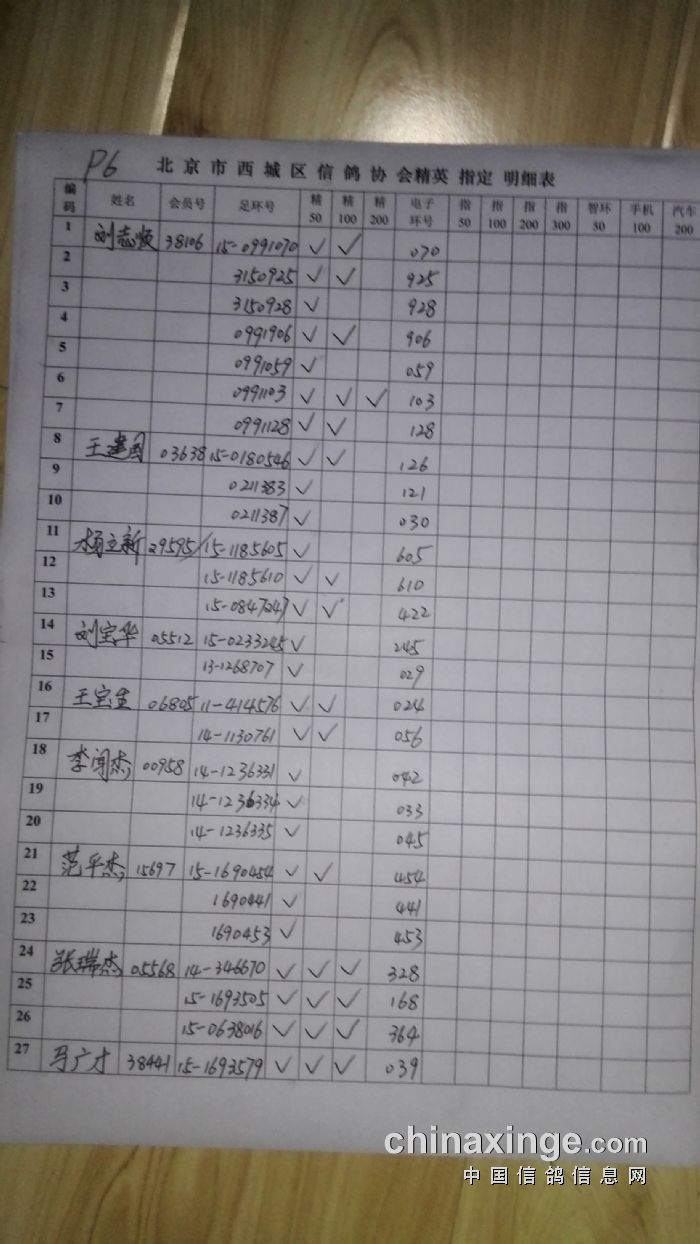 P6 北京市西城区信鸽协会精英 指定 明细表
编码 姓名 会员号 足环号 精50 精100 精200 电子环号 指50 指100 指200 指300 智环50 手机100 汽车200
1 刘志顺 38106 15-0991070 ✓ ✓ 070
2 3150925 ✓ ✓ 925
3 3150928 ✓ 928
4 0991906 ✓ ✓ 906
5 0991059 ✓ 059
6 0991103 ✓ ✓ ✓ 103
7 0991128 ✓ ✓ 128
8 王建国 03638 15-0180546 ✓ ✓ 126
9 0211383 ✓ 121
10 0211387 ✓ 030
11 杨立新 29595 15-1185605 ✓ 605
12 15-1185610 ✓ ✓ 610
13 15-0847247 ✓ ✓ 422
14 刘宝华 05512 15-0233245 ✓ 245
15 13-1268707 ✓ 029
16 王宝生 06805 11-414576 ✓ ✓ 024
17 14-1130761 ✓ ✓ 056
18 李闯杰 00958 14-1236331 ✓ 042
19 14-1236334 ✓ 033
20 14-1236335 ✓ 045
21 范平杰 15697 15-1690454 ✓ ✓ 454
22 1690441 ✓ 441
23 1690453 ✓ 453
24 张瑞杰 05568 14-346670 ✓ ✓ ✓ 328
25 15-1693505 ✓ ✓ ✓ 168
26 15-0638016 ✓ ✓ ✓ 364
27 马广才 38441 15-1693579 ✓ ✓ ✓ 039
chinaxinge.com
中国信鸽信息网